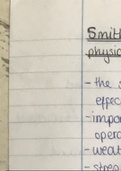 Smith
physic
- the s
effec
- impor
opera
- weat
- stres